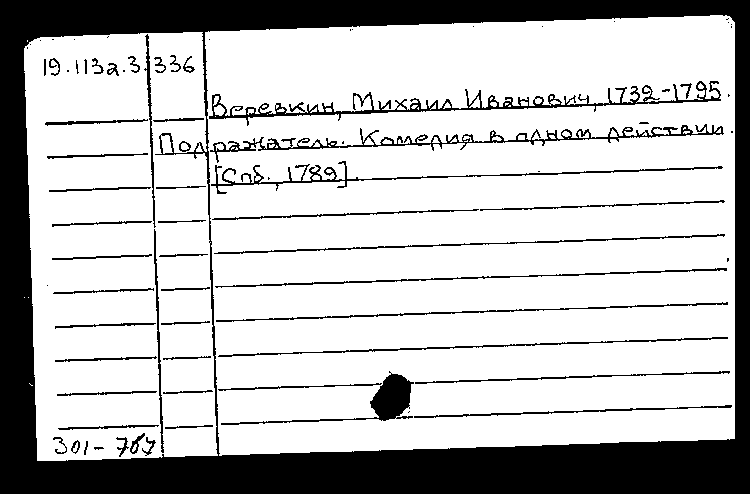 19.113а.3.336
Веревкин, Михаил Иванович, 1732-1795.
Подражатель. Комедия в одном действии.
[Спб., 1789].